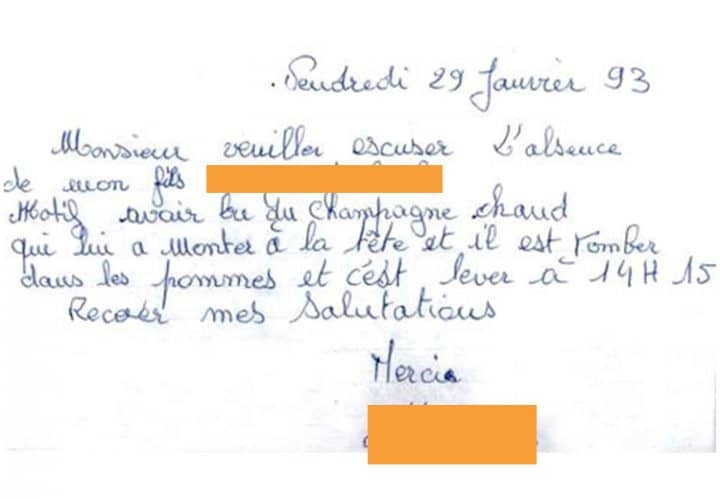 Vendredi 29 Janvier 93
Monsieur veuiller escuser L'absence
de mon fils
Motif avair bu du champagne chaud
qui lui a monter à la tête et il est tomber
dans les pommes et c'ést lever à 14H15
Recever mes salutations
Mercie